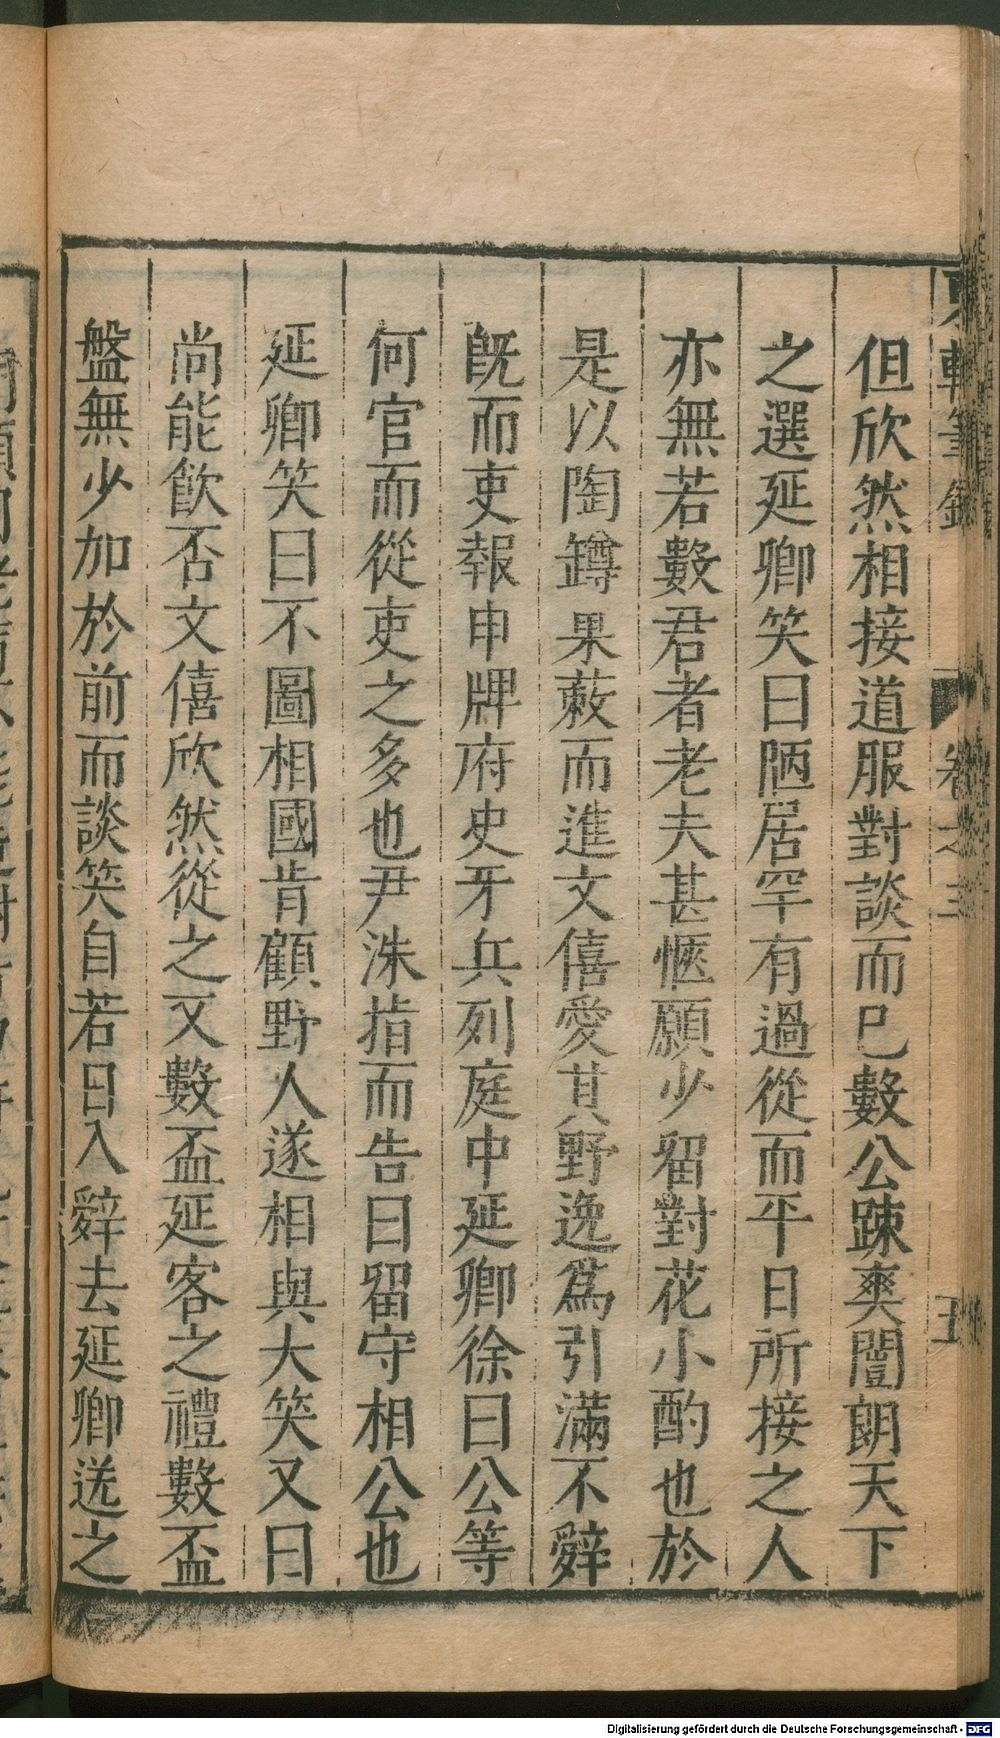 東軒筆錄 卷之三 五
但欣然相接道服對談而已數公踈爽闓朗天下
之選延卿笑曰陋居罕有過從而平日所接之人
亦無若數君者老夫甚愜願少留對花小酌也於
是以陶罇果蔌而進文僖愛其野逸爲引滿不辭
旣而吏報申牌府史牙兵列庭中延卿徐曰公等
何官而從吏之多也尹洙指而告曰留守相公也
延卿笑曰不圖相國肯顧野人遂相與大笑又曰
尚能飮否文僖欣然從之又數盃延客之禮數盃
盤無少加於前而談笑自若日入辭去延卿送之
Digitalisierung gefördert durch die Deutsche Forschungsgemeinschaft - DFG